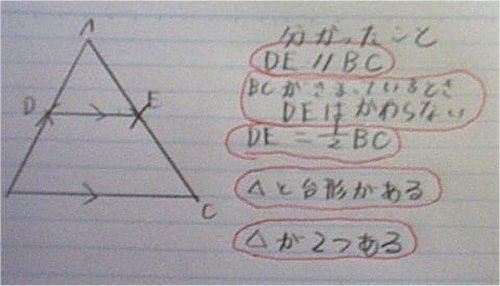 A
D
E
C
分かったこと
DE // BC
BCがきまっているとき
DEはかわらない
DE = 1/2 BC
△と台形がある
△が2つある